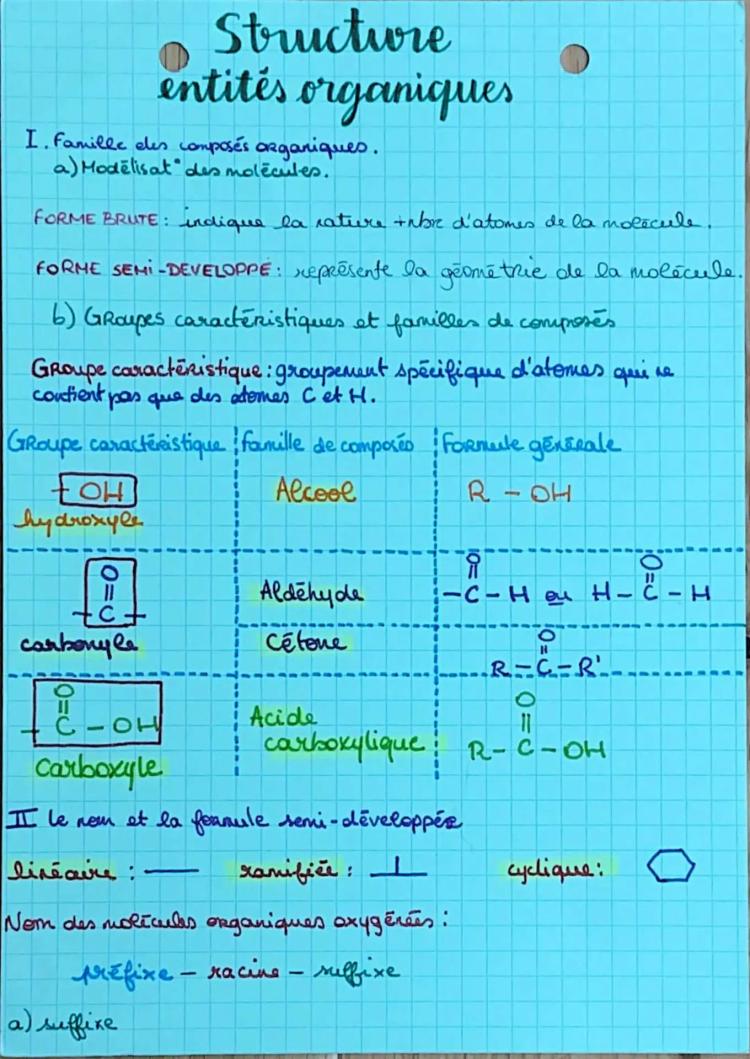 Structure
entités organiques
I. Famille des composés organiques.
a) Modélisat° des molécules.
FORME BRUTE : indique la nature + nbre d'atomes de la molécule.
FORME SEMI-DEVELOPPÉ : représente la géométrie de la molécule.
b) Groupes caractéristiques et familles de composés
Groupe caractéristique : groupement spécifique d'atomes qui ne
contient pas que des atomes C et H.
Groupe caractéristique famille de composés Formule générale
- OH Alcool R - OH
hydroxyle
O O O
|| || ||
- C - Aldéhyde - C - H ou H - C - H
carbonyle Cétone O
||
R - C - R'
O Acide O
|| carboxylique ||
- C - OH R - C - OH
carboxyle
II Le nom et la formule semi-développée
linéaire : ramifiée : cyclique :
Nom des molécules organiques oxygénées :
préfixe - racine - suffixe
a) suffixe